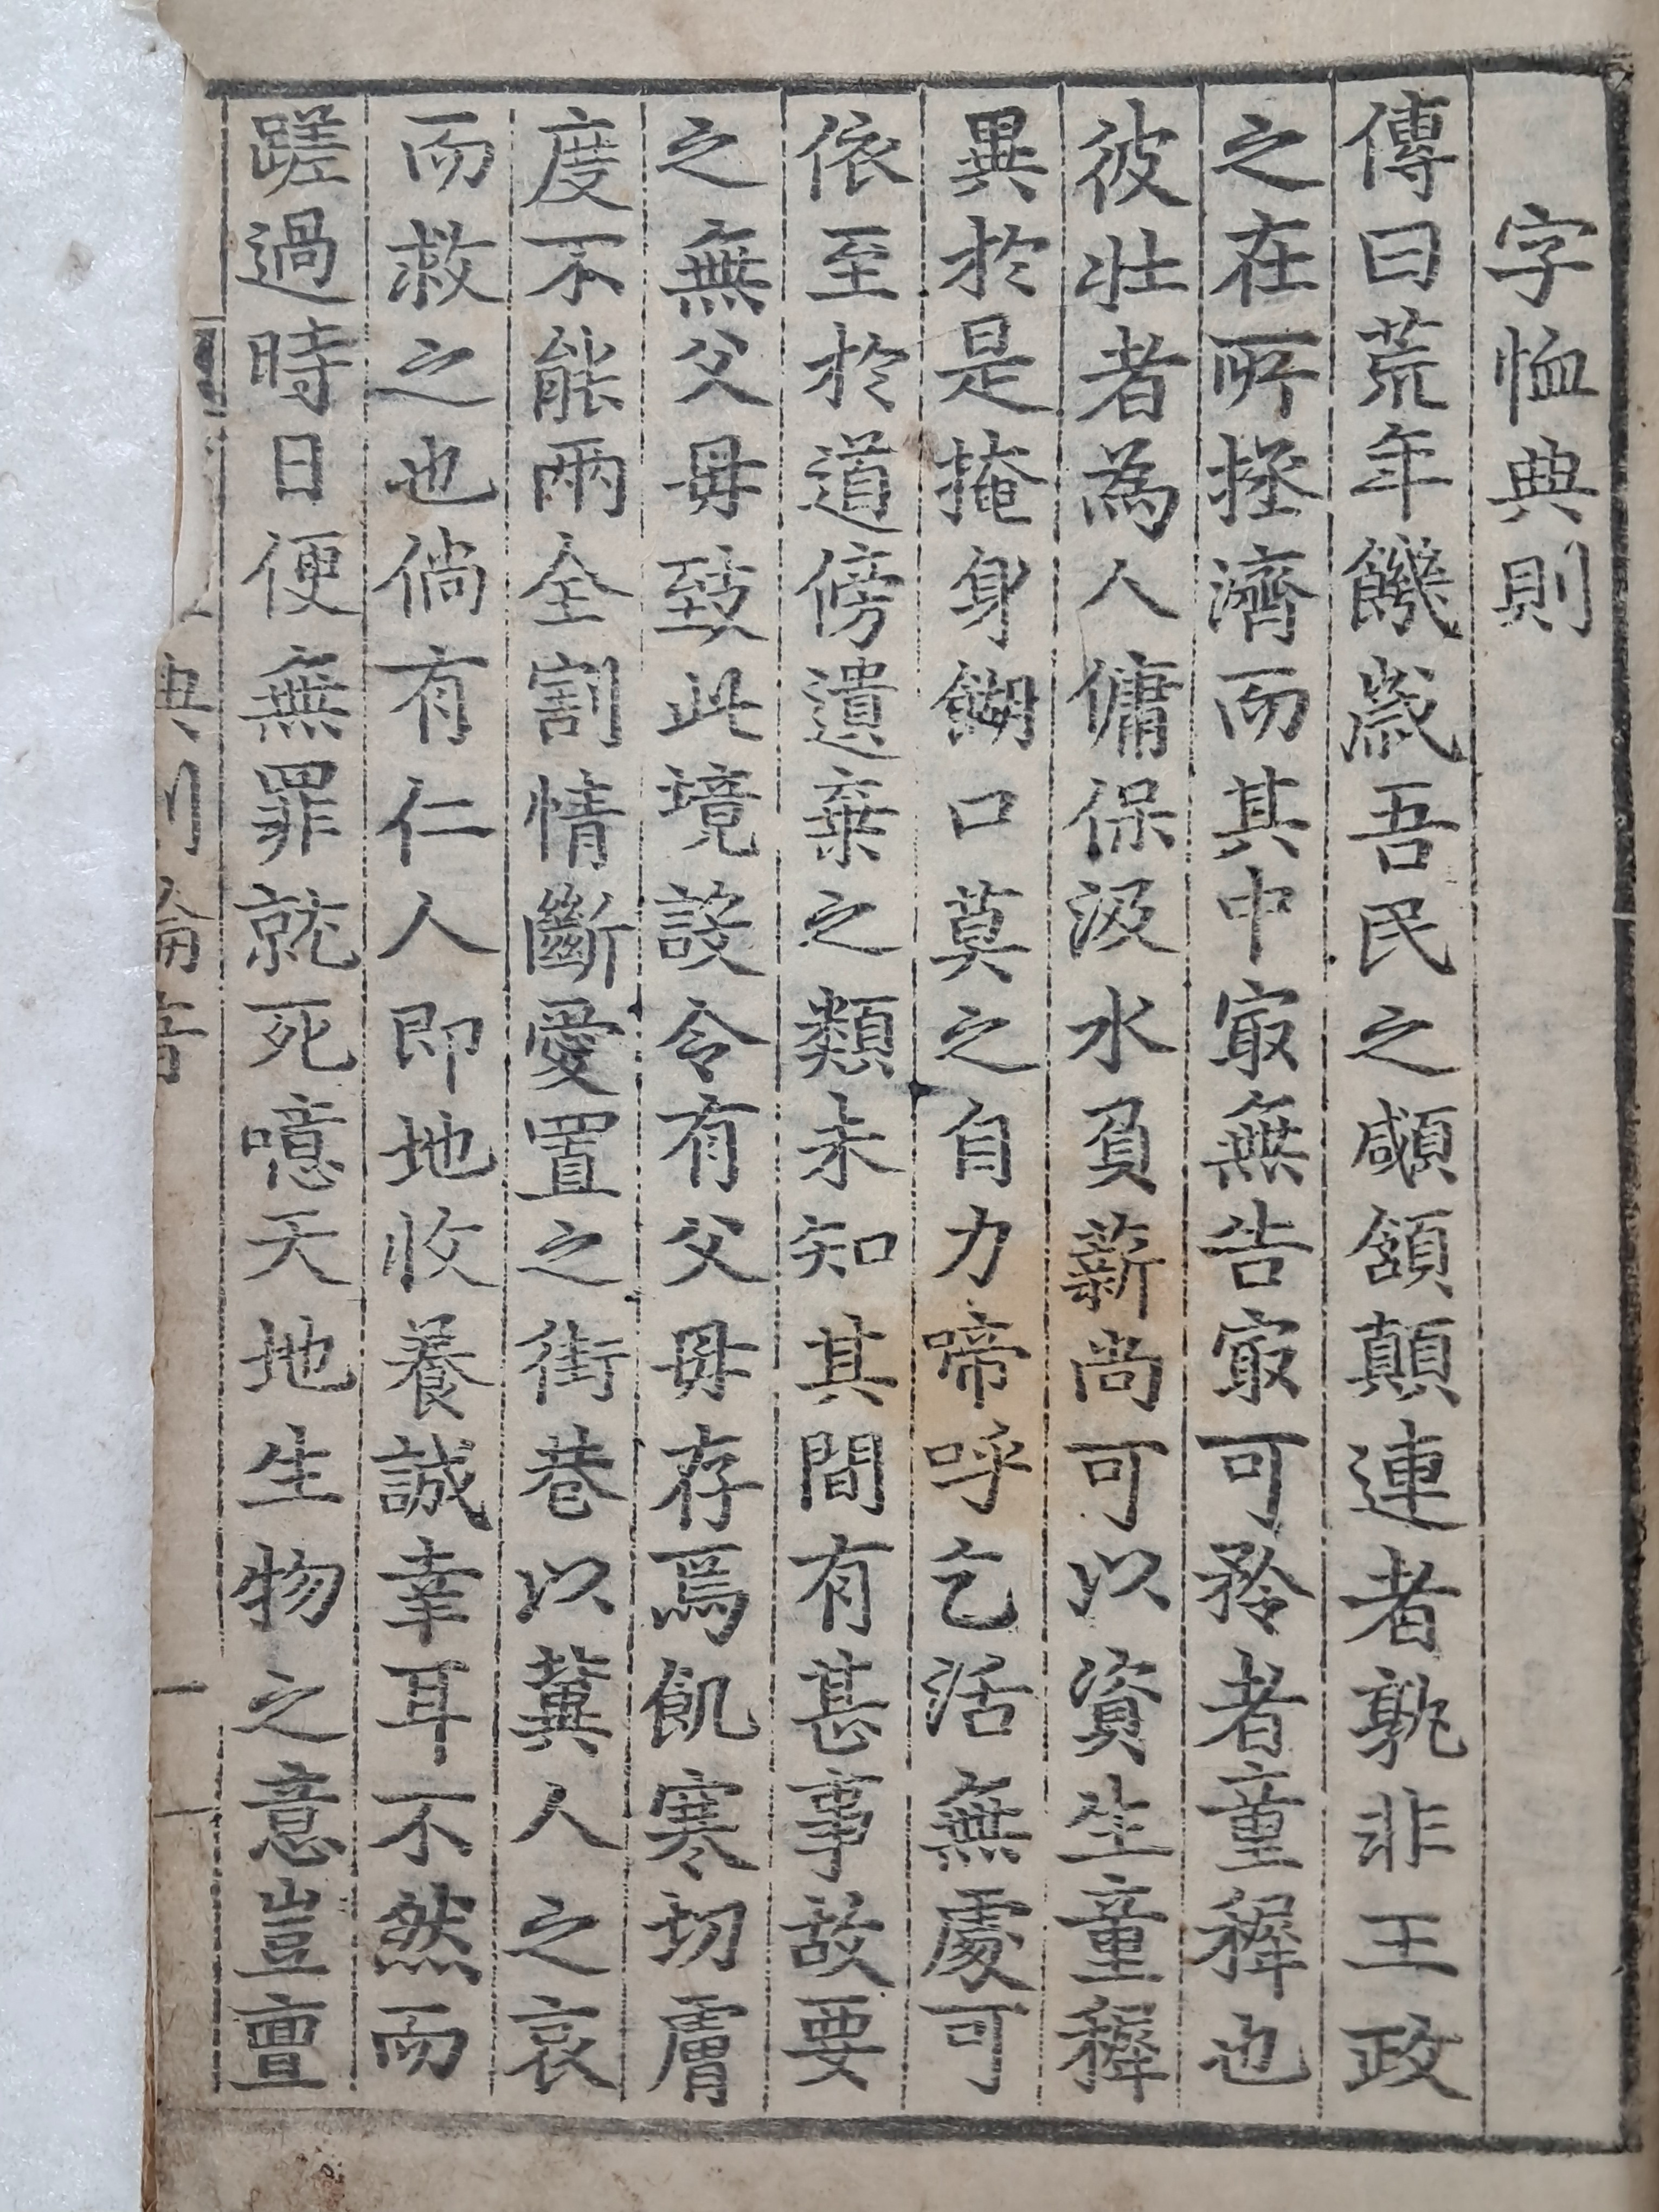 字恤典則
傳曰荒年饑歲吾民之顑頷顛連者孰非王政
之在所拯濟而其中㝡無告㝡可矜者童穉也
彼壯者為人傭保汲水負薪尚可以資生童穉
異於是掩身餬口莫之自力啼呼乞活無處可
依至於道傍遺棄之類未知其間有甚事故要
之無父母致此境設令有父母存焉飢寒切膚
度不能兩全割情斷愛置之街巷以冀人之哀
而救之也倘有仁人即地收養誠幸耳不然而
蹉過時日便無罪就死噫天地生物之意豈亶